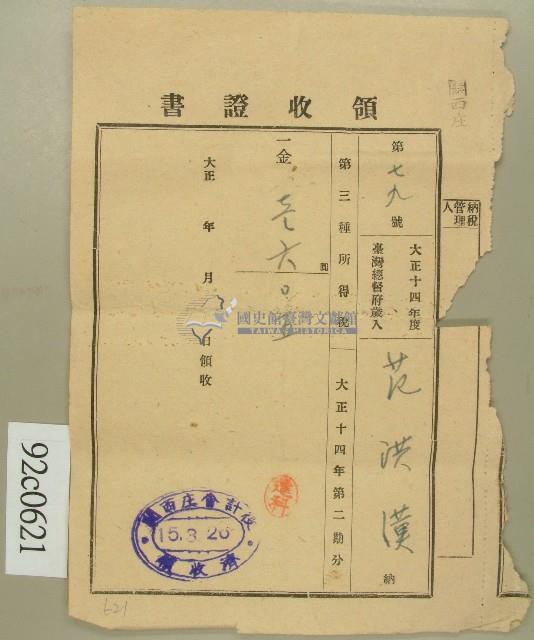 領收證書
關西庄
納稅管理人
第七九號
大正十四年度
臺灣總督府歲入
范洪漢 納
第三種所得稅
大正十四年第二期分
一金
圓
壱六〇五
大正 年 月 日領收
國史館臺灣文獻館
TAIWAN HISTORICA
關西庄會計役
15.3.26
領收濟
92c0621
621